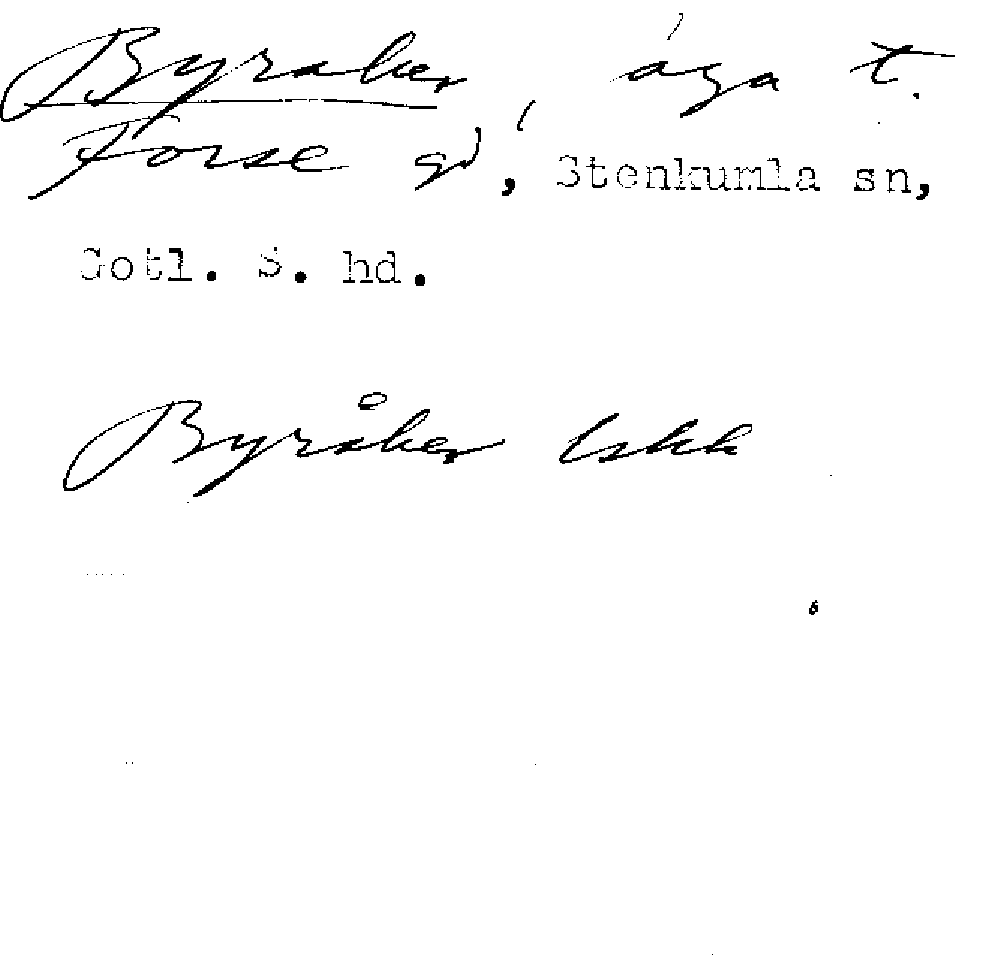 Byråker, äga t.
Forse gd, Stenkumla sn,
Gotl. S. hd.
Byråker Lskk